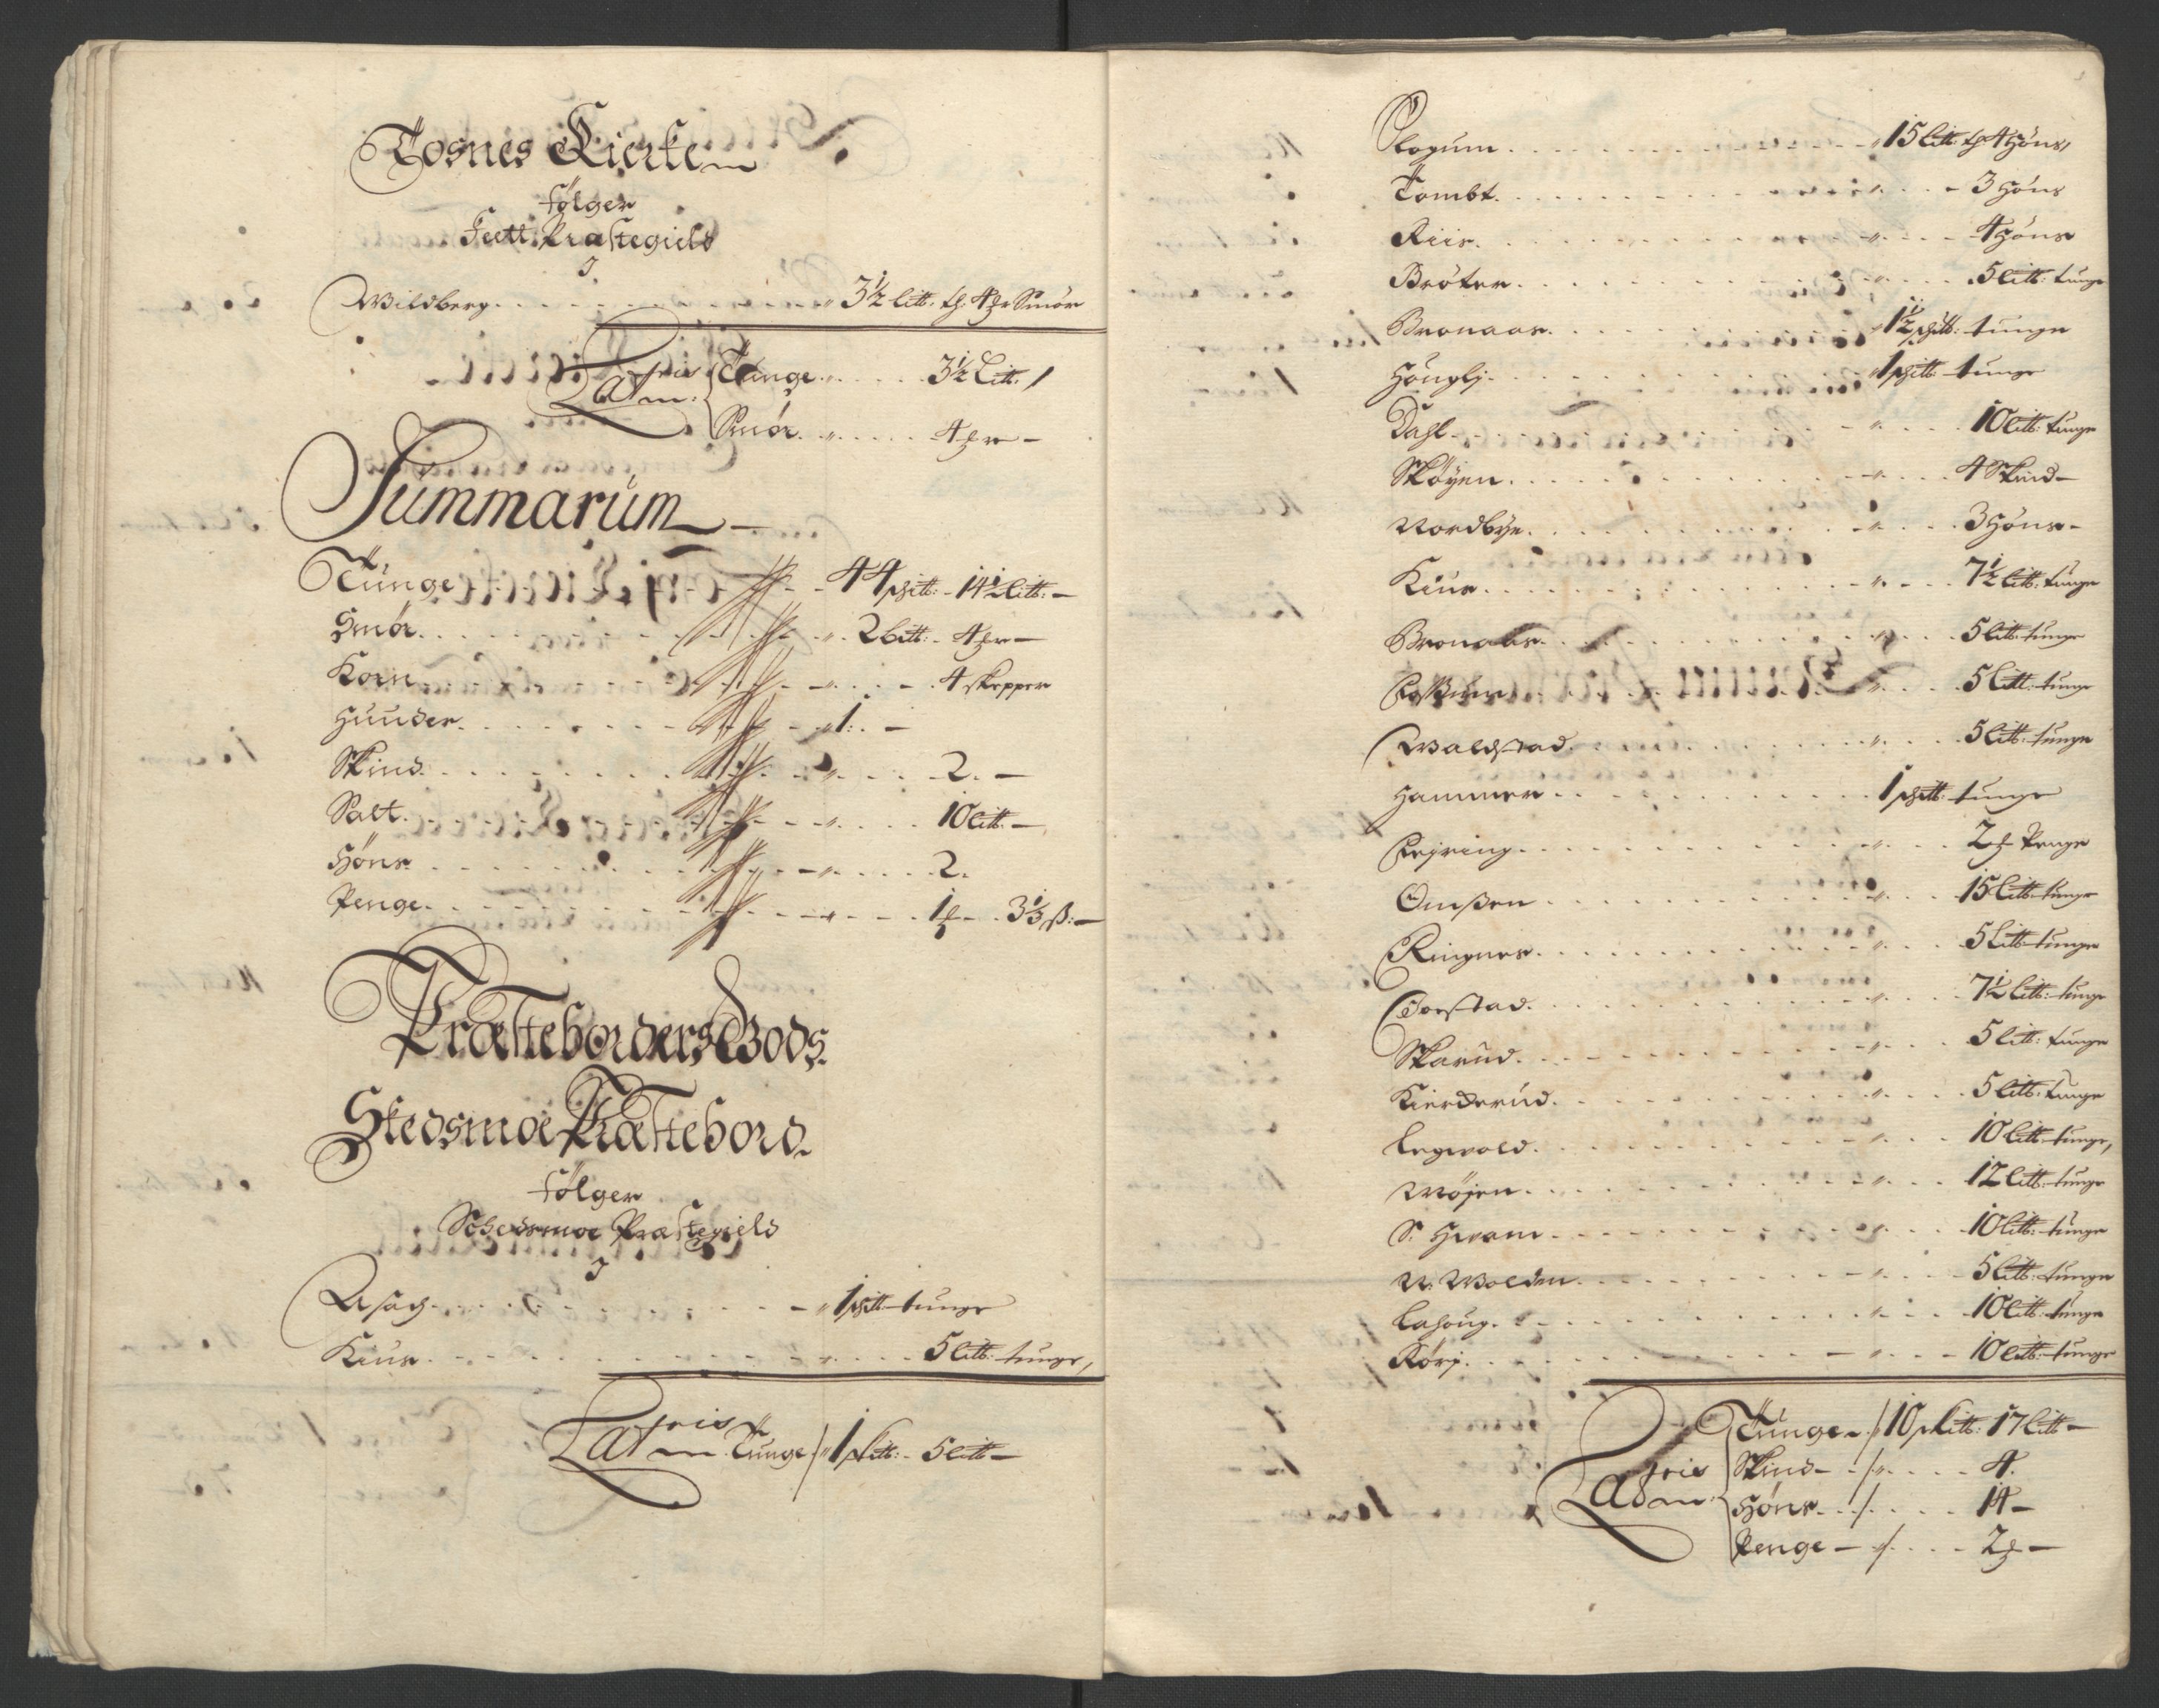 Tosnes Kierke
følger
Feett Præstegield
J
Wildberg 3½ litt: ... 4 ... Smör
Lat. ris m: Tunge 3½ Litt:
Smör 4 ...
Summarum
Tunge 44 schtt: 14½ Litt:
Smör 2 bitt: 4 ...
Korn 4 skepper
Huuder 1
Skind 2
Salt 10 litt:
Höns 2
Penge 1 ... 3⅓ ß:
Præsteborders Gods
Skedsmoe Præstebord
følger
Schedsmoe Præstegield
J
Asach 1 schtt: tunge
Kiuus 5 litt: tunge,
Lat. ris m. Tunge 1 schtt: 5 Litt:
Rogum 15 litt: ... 4 höns,
Tombt 3 höns
Riis 4 höns
Bröter 5 litt: tunge
Bronaas 1½ schtt: tunge
Hönglj 1 schtt: tunge
Dahl 10 litt: tunge
Skøyen 4 Skind
Nordbye 3 höns
Kius 7½ litt: tunge
Bronaas 5 litt: tunge
Foßum 5 litt: tunge
Waldstad 5 litt: tunge
Hammer 1 schtt: tunge
Frejring 2 ... Penge
Omßen 15 litt: tunge
Ringnes 5 litt: tunge
Torstad 7½ litt: tunge
Skarud 5 litt: tunge
Kierderud 5 litt: tunge
Legwold 10 litt: tunge,
Møjen 12 litt: tunge
S: Hwam 10 litt: tunge
N: Wolden 5 litt: tunge
Lahoug 10 litt: tunge
Rörj 10 litt: tunge
Lat. ris m: Tunge 10 schtt: 17 litt:
Skind 4.
Höns 14
Penge 2 ...